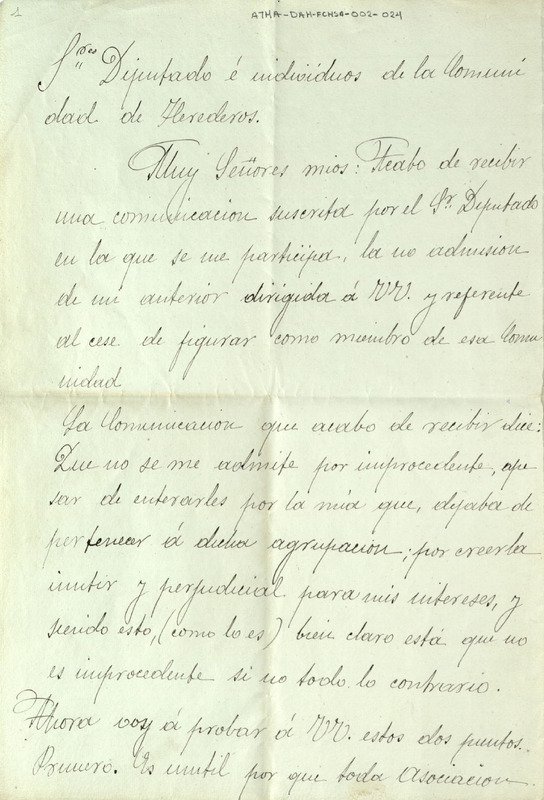 1
ATHA-DAH-FCHSA-002-024
Sres Diputado é individuos de la Comuni
dad de Herederos.
Muy Señores mios: Acabo de recibir
una comunicacion suscrita por el Sr. Diputado
en la que se me participa, la no admision
de mi anterior dirigida á VV. y referente
al cese de figurar como miembro de esa Comu
nidad
La Comunicacion que acabo de recibir dice:
Que no se me admite por improcedente, ape
sar de enterarles por la mia que, dejaba de
pertenecer á dicha agrupacion; por creerla
inutil y perjudicial para mis intereses, y
siendo esto, (como lo es) bien claro está que no
es improcedente si no todo lo contrario.
Ahora voy á probar á VV. estos dos puntos.
Primero. Es inutil por que toda Asociacion